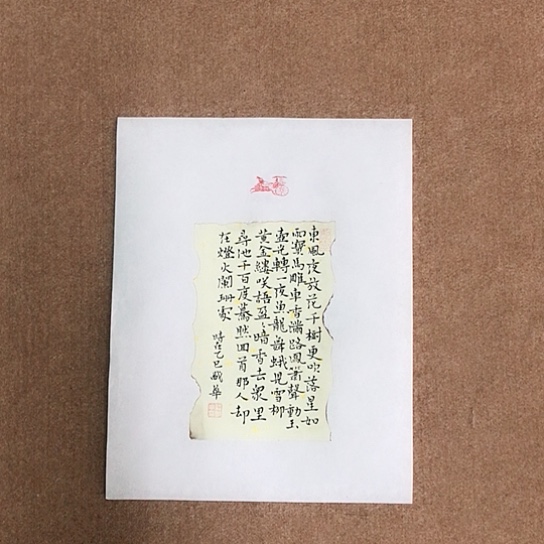 東風夜放花千樹更吹落星如
雨寶馬雕車香滿路鳳簫聲動玉
壺光轉一夜魚龍舞蛾兒雪柳
黃金縷咲語盈〻暗香去衆里
尋他千百度驀然回首那人却
在燈火闌珊處
時在乙巳華